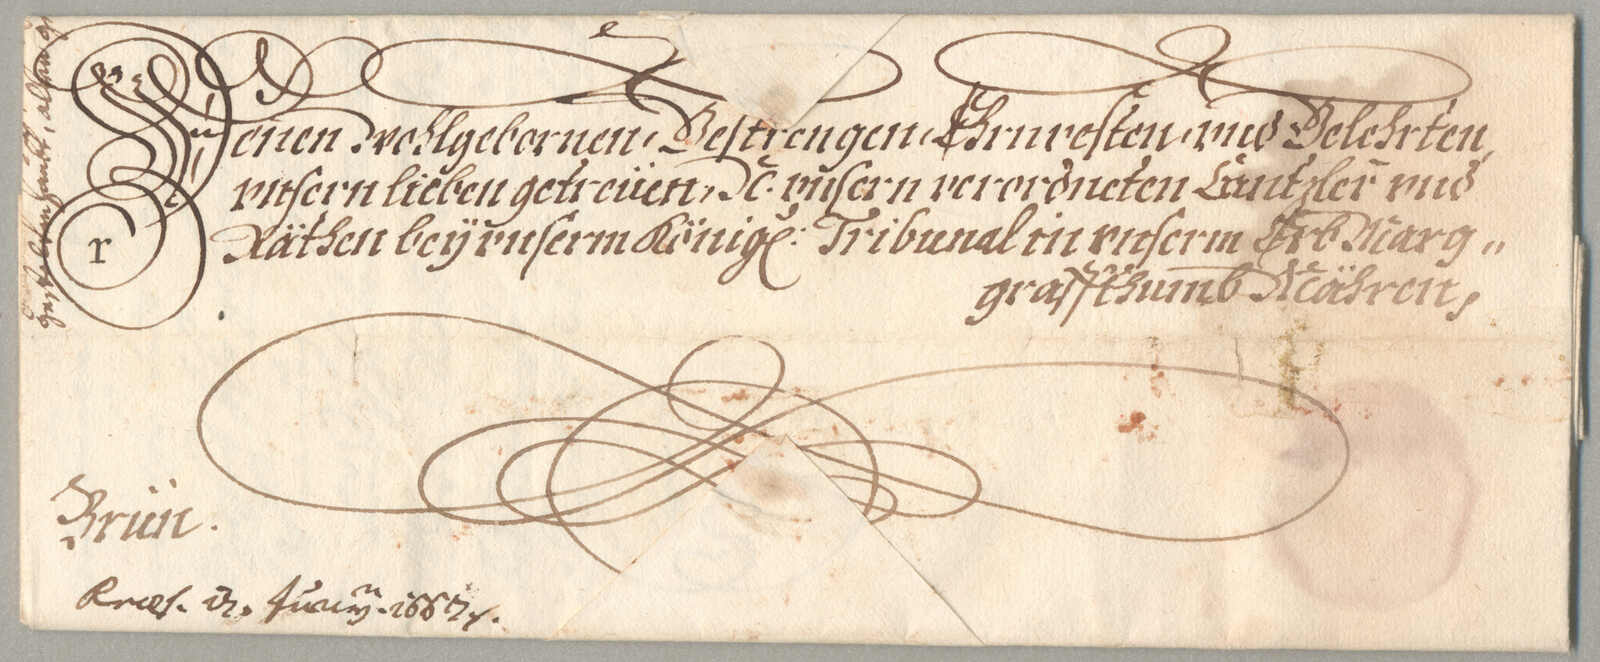 Denen Wohlgebornen, Gestrengen, Ehrnvesten, vnd Gelehrten,
vnsern lieben getreüen, N: vnsern verordneten Cantzler vnd
Räthen beÿ vnserm Königl: Tribunal in vnserm Erb Marg„
graffthumb Mähren,
r
Brün.
Præs. Junÿ. 1667